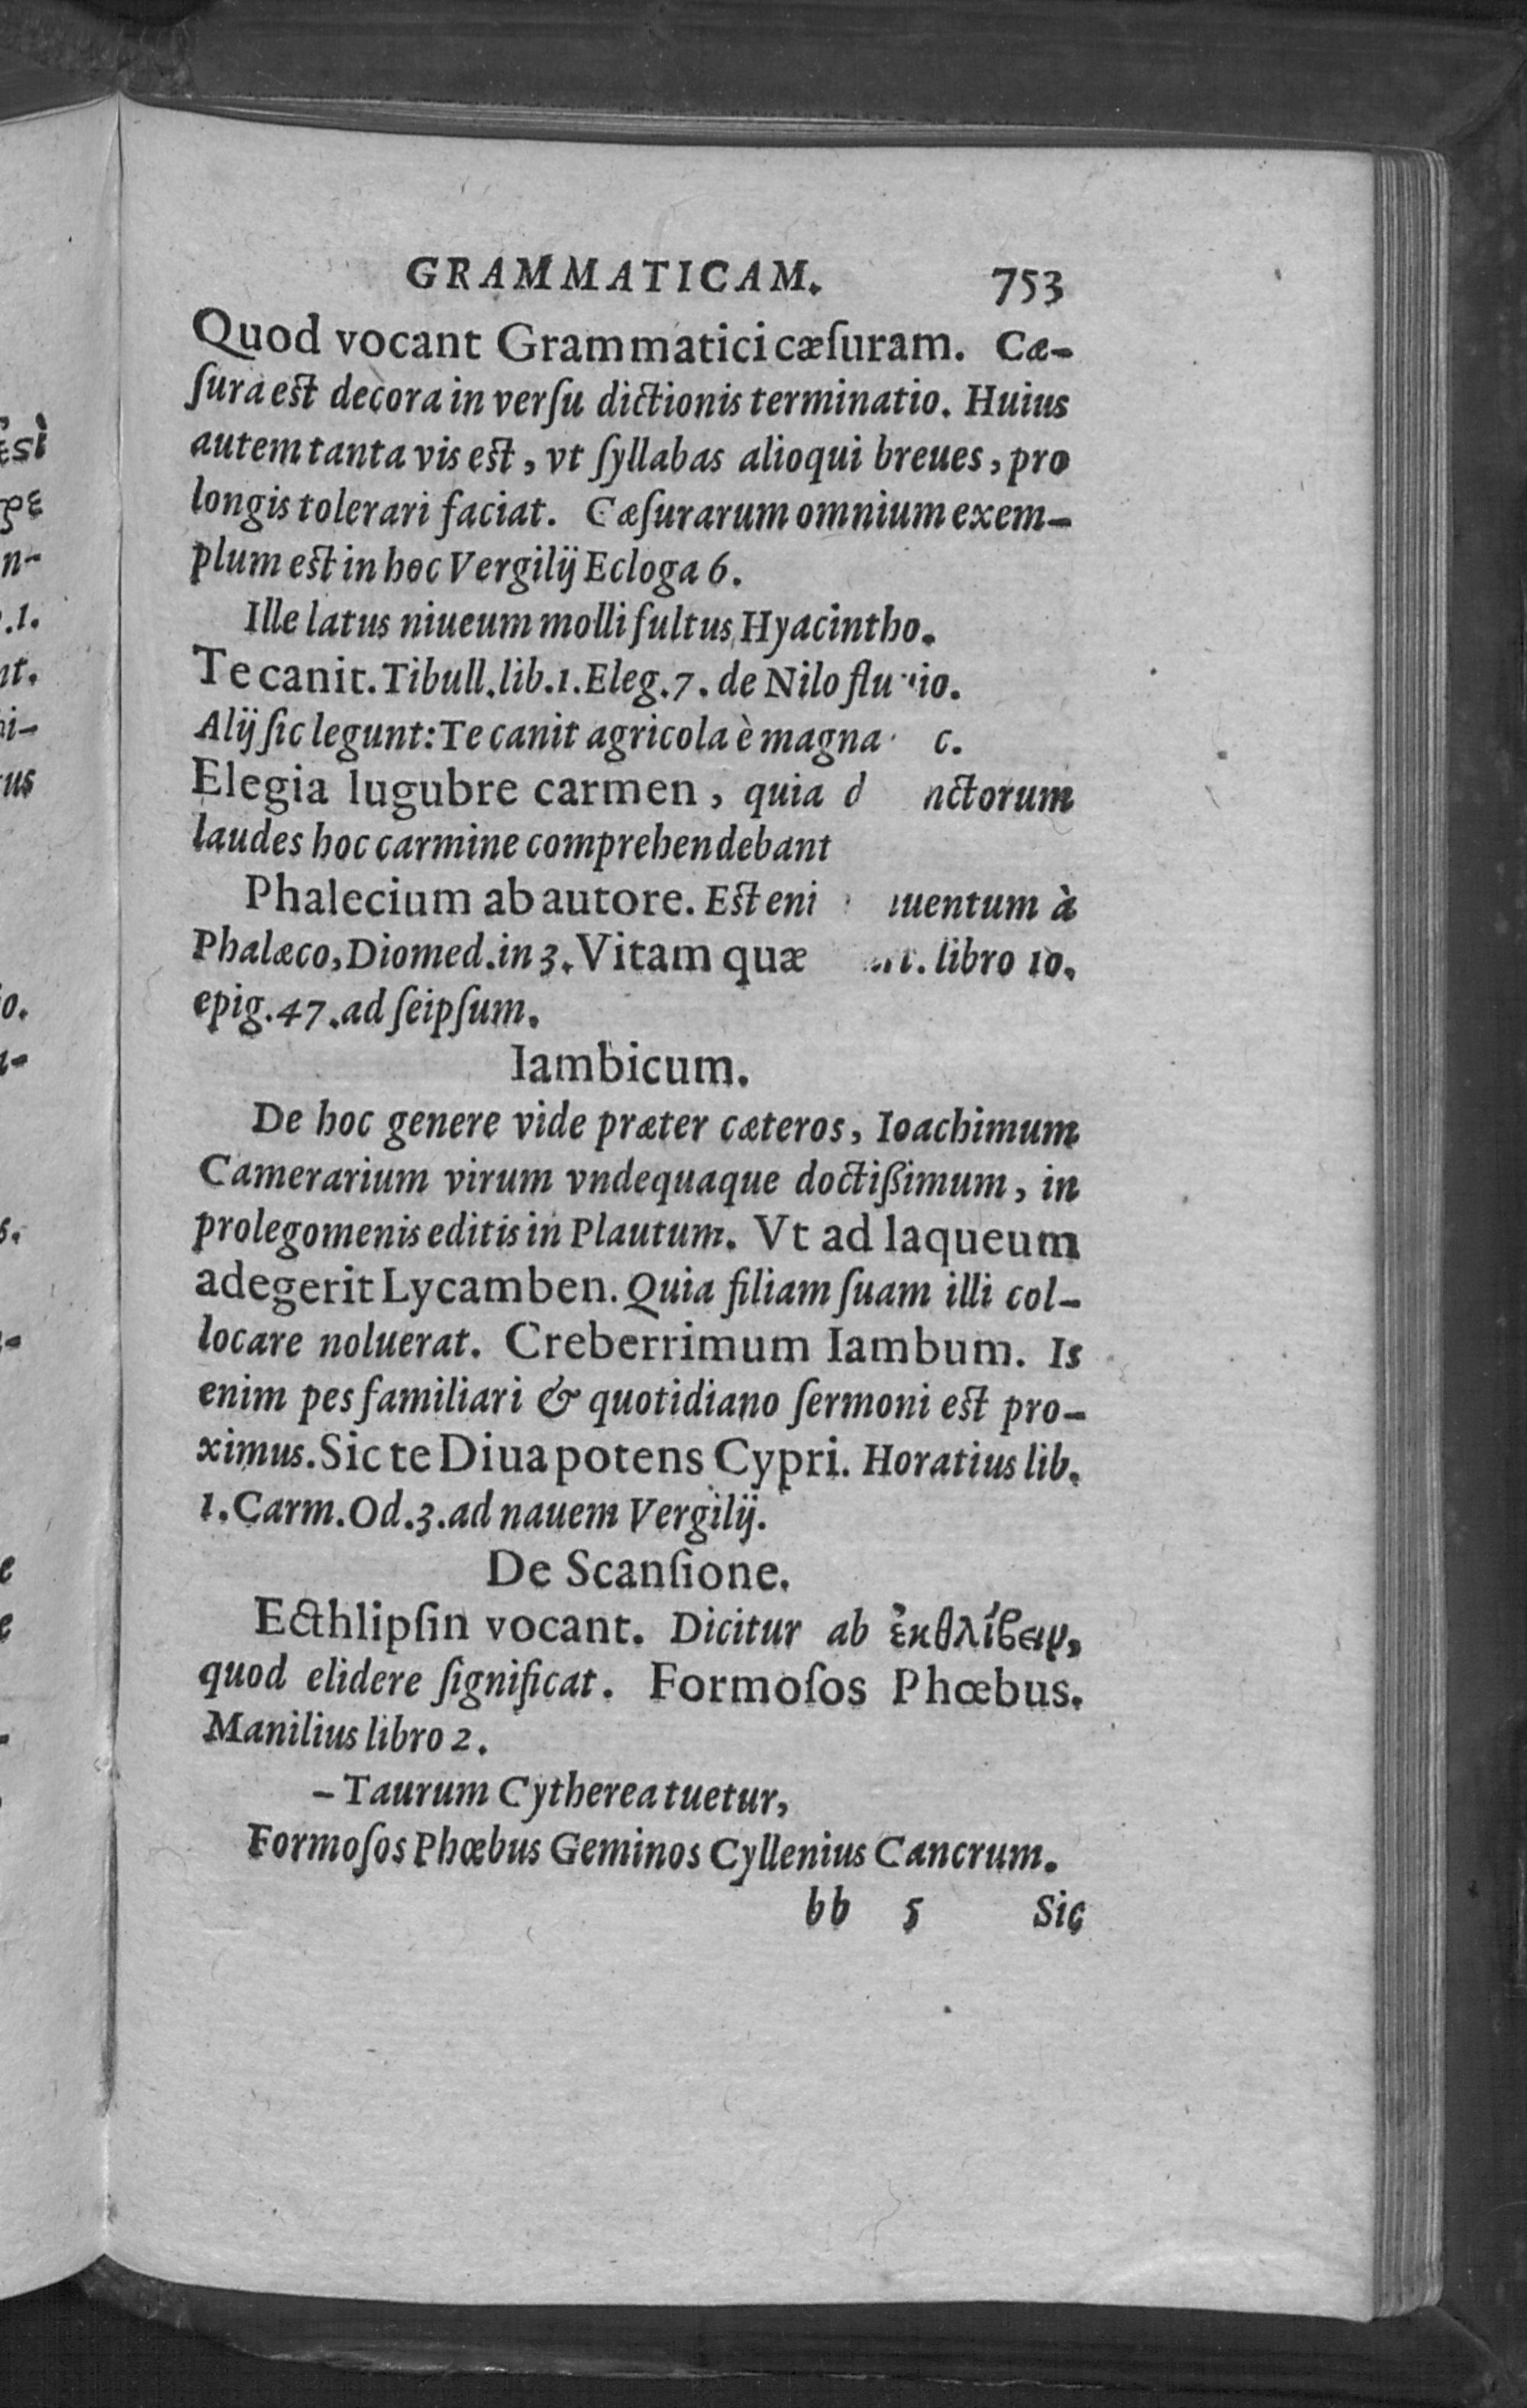 GRAMMATICAM. 753
Quod vocant Grammatici cæſuram. Cæ-
ſura est decora in verſu dictionis terminatio. Huius
autem tanta vis est, vt ſyllabas alioqui breues, pro
longis tolerari faciat. Cæſurarum omnium exem-
plum est in hoc Vergilij Ecloga 6.
Ille latus niueum molli fultus Hyacintho.
Te canit. Tibull. lib. 1. Eleg. 7. de Nilo
Alij ſic legunt: Te canit agricola è magna c.
Elegia lugubre carmen, quia
laudes hoc carmine comprehendebant
Phalecium ab autore. Est à
Phalæco, Diomed. in 3. Vitam quæ libro 10.
epig. 47. ad ſeipſum.
Iambicum.
De hoc genere vide præter cæteros, Ioachimum
Camerarium virum vndequaque doctißimum, in
prolegomenis editis in Plautum. Vt ad laqueum
adegerit Lycamben. Quia filiam ſuam illi col-
locare noluerat. Creberrimum Iambum. Is
enim pes familiari & quotidiano ſermoni est pro-
ximus. Sic te Diua potens Cypri. Horatius lib.
1. Carm. Od. 3. ad nauem Vergilij.
De Scanſione.
Ecthlipſin vocant. Dicitur ab ἐκθλίβειν,
quod elidere ſignificat. Formoſos Phœbus.
Manilius libro 2.
– Taurum Cytherea tuetur,
Formoſos Phœbus Geminos Cyllenius Cancrum.
bb 5 Sic